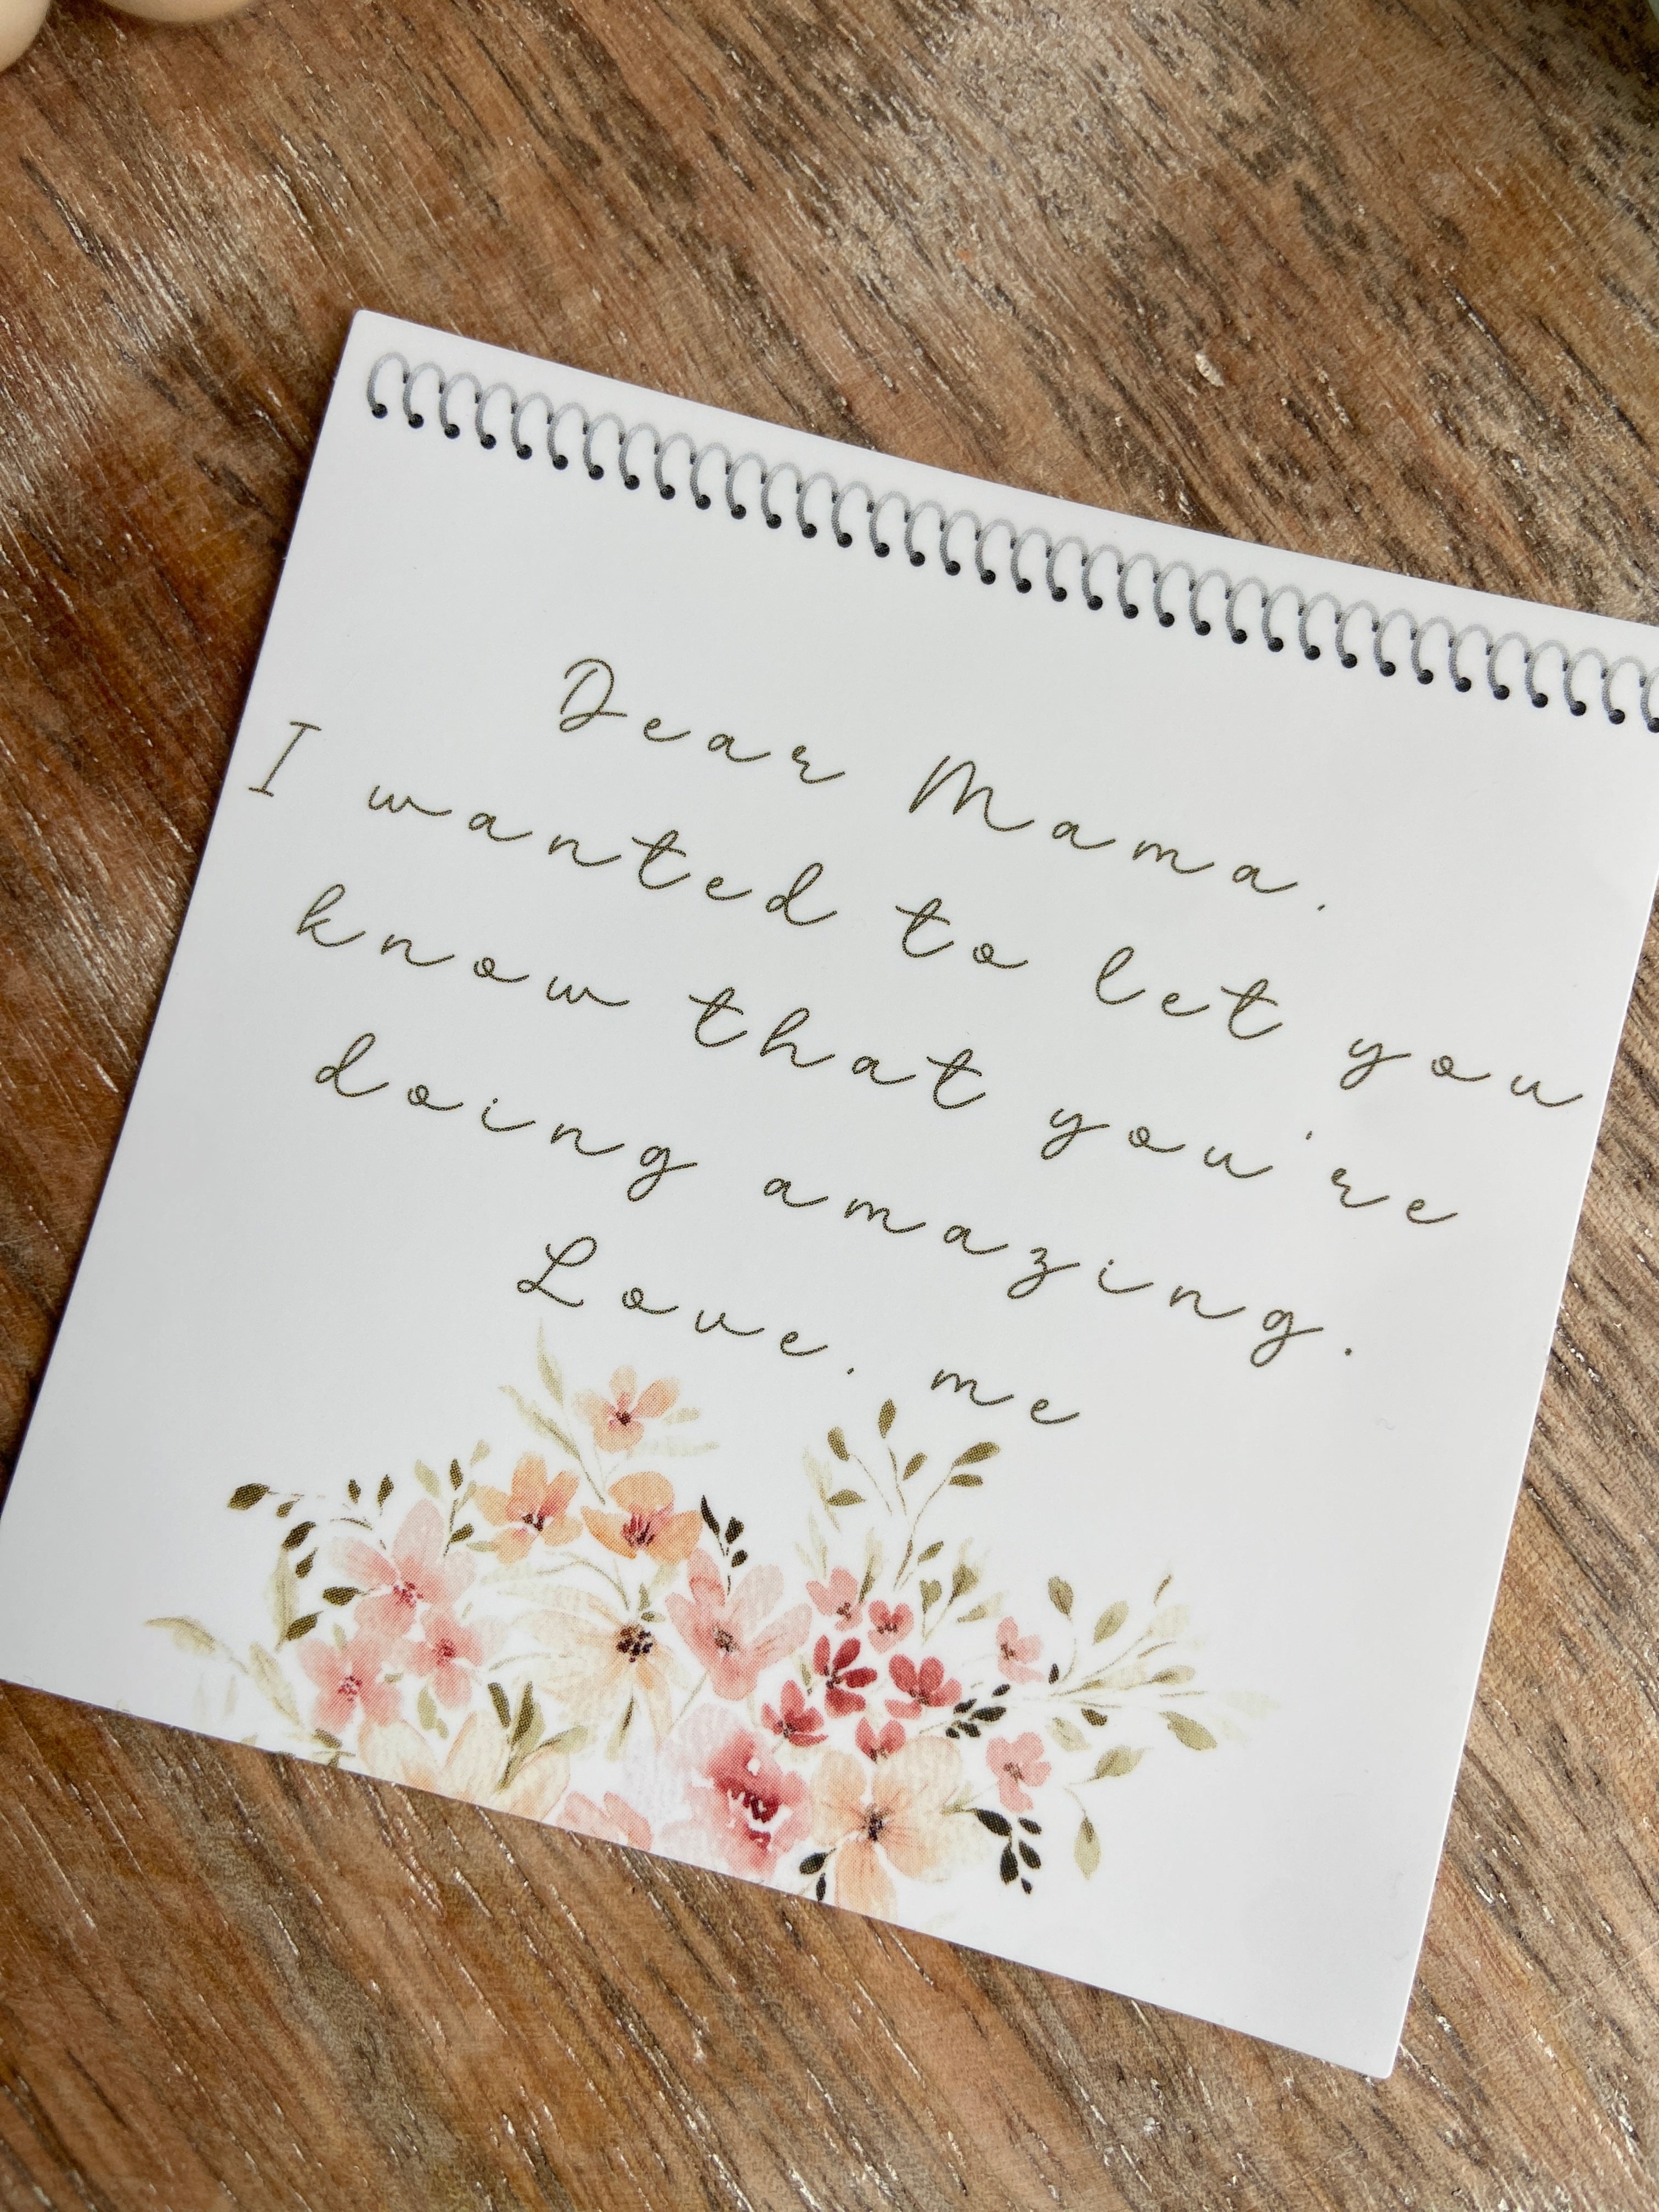 Dear Mama,
I wanted to let you
know that you're
doing amazing.
Love, me